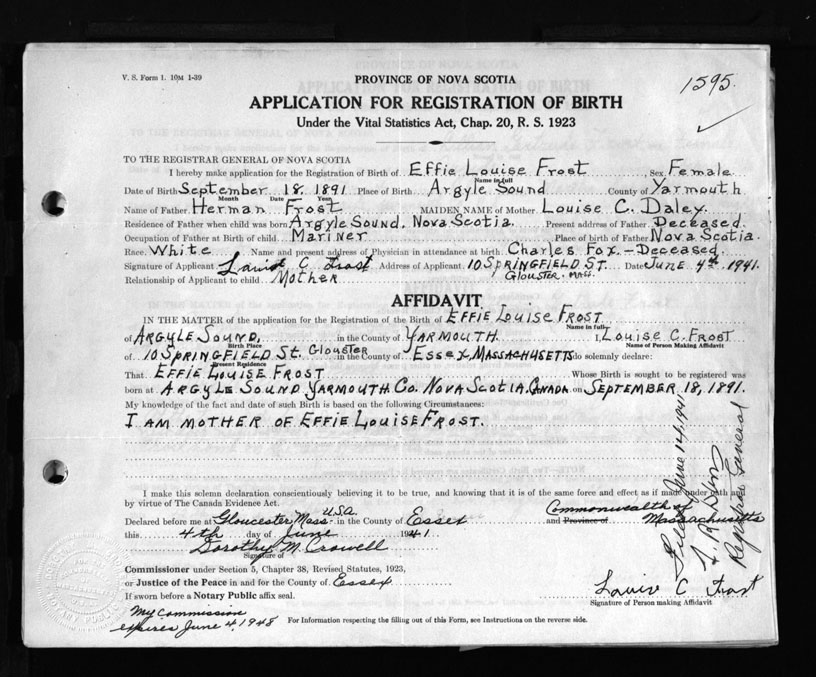 V. S. Form 1. 10M 1-39
1595.
PROVINCE OF NOVA SCOTIA
APPLICATION FOR REGISTRATION OF BIRTH
Under the Vital Statistics Act, Chap. 20, R. S. 1923
TO THE REGISTRAR GENERAL OF NOVA SCOTIA
I hereby make application for the Registration of Birth of Effie Louise Frost, Sex Female
Name in full
Date of Birth September 18. 1891. Place of Birth Argyle Sound County of Yarmouth
Month Date Year
Name of Father Herman Frost MAIDEN NAME of Mother Louise C. Daley.
Residence of Father when child was born Argyle Sound. Nova Scotia. Present address of Father Deceased.
Occupation of Father at Birth of child Mariner Place of birth of Father Nova Scotia.
Race White Name and present address of Physician in attendance at birth Charles Fox – Deceased
Signature of Applicant Louise C Frost Address of Applicant 10 SPRINGFIELD ST. Date JUNE 4th 1941.
GLOUSTER. MASS.
Relationship of Applicant to child Mother
AFFIDAVIT
IN THE MATTER of the application for the Registration of the Birth of EFFIE LOUISE FROST
Name in full
of ARGYLE SOUND, in the County of YARMOUTH. I, LOUISE C. FROST
Birth Place Name of Person Making Affidavit
of 10 SPRINGFIELD ST. GLOUSTER in the County of ESSEX, MASSACHUSETTS do solemnly declare:
Present Residence
That EFFIE LOUISE FROST Whose Birth is sought to be registered was
born at ARGYLE SOUND YARMOUTH CO. NOVA SCOTIA. CANADA on SEPTEMBER 18, 1891.
My knowledge of the fact and date of such Birth is based on the following Circumstances:
I AM MOTHER OF EFFIE LOUISE FROST.
I make this solemn declaration conscientiously believing it to be true, and knowing that it is of the same force and effect as if made under oath and
by virtue of The Canada Evidence Act.
Commonwealth of
Declared before me at Gloucester Mass. U.S.A in the County of Essex and Province of Massachusetts
this 4th day of June 1941
Dorothy M. Crowell
Signature of
Commissioner under Section 5, Chapter 38, Revised Statutes, 1923,
or Justice of the Peace in and for the County of Essex
If sworn before a Notary Public affix seal.
Louise C Frost
Signature of Person making Affidavit
My Commission
expires June 4, 1948
For Information respecting the filling out of this Form, see Instructions on the reverse side.
Filed June 14, 1941
Registrar General